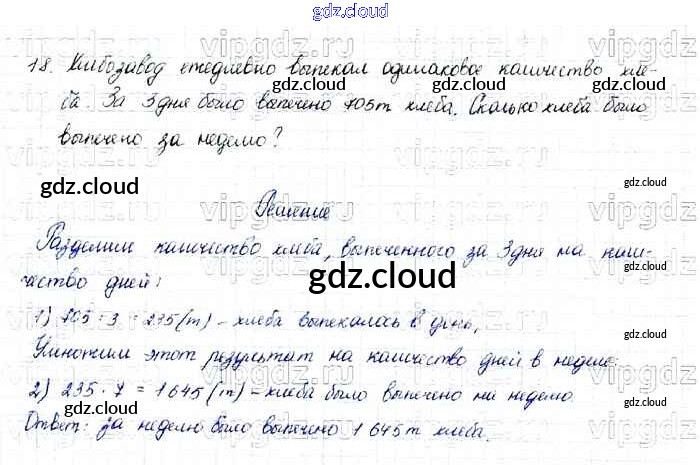 gdz.cloud
18. Хлебозавод ежедневно выпекал одинаковое количество хле-
ба. За 3 дня было выпечено 705 т хлеба. Сколько хлеба было
выпечено за неделю?
Решение
Разделим количество хлеба, выпеченного за 3 дня на коли-
чество дней:
1) 705 : 3 = 235 (т) - хлеба выпекалось в день,
Умножим этот результат на количество дней в неделе:
2) 235 · 7 = 1645 (т) - хлеба было выпечено на неделю.
Ответ: за неделю было выпечено 1 645 т хлеба.